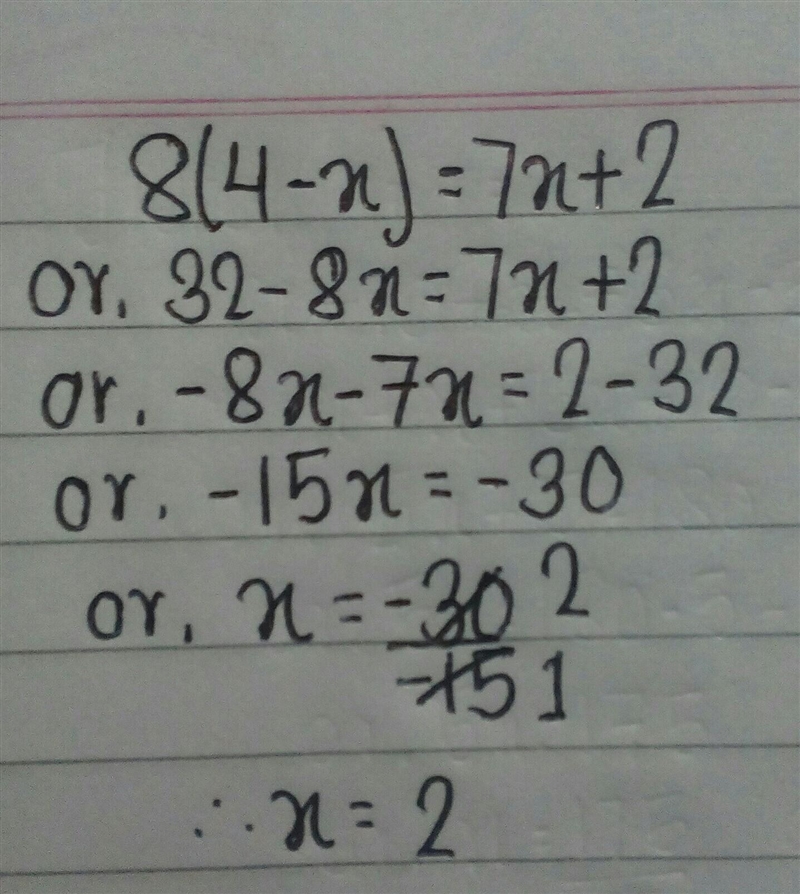 8(4-x)=7x+2
or, 32-8x=7x+2
or, -8x-7x=2-32
or, -15x=-30
or, x=-30 2
-15 1
∴x=2